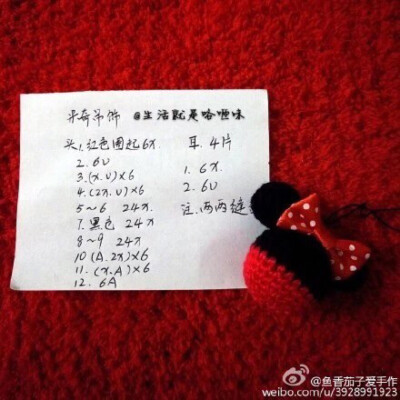 米奇吊饰 @生活就是咯咂味
头 1. 红色圈起6x.
2. 6v
3. (x.v)×6
4. (2x.v)×6
5~6 24x
7. 黑色 24x
8~9 24x
10 (A.2x)×6
11. (x.A)×6
12. 6A
耳. 4片
1. 6x.
2. 6v
注. 两两缝
@鱼香茄子爱手作
weibo.com/u/3928991923